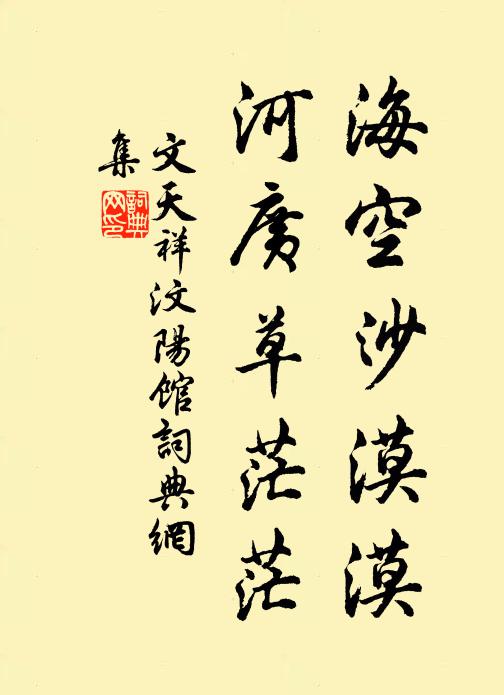 海空沙漠漠
河廣草茫茫
文天祥汶陽館詞典網
集
詞典
网印